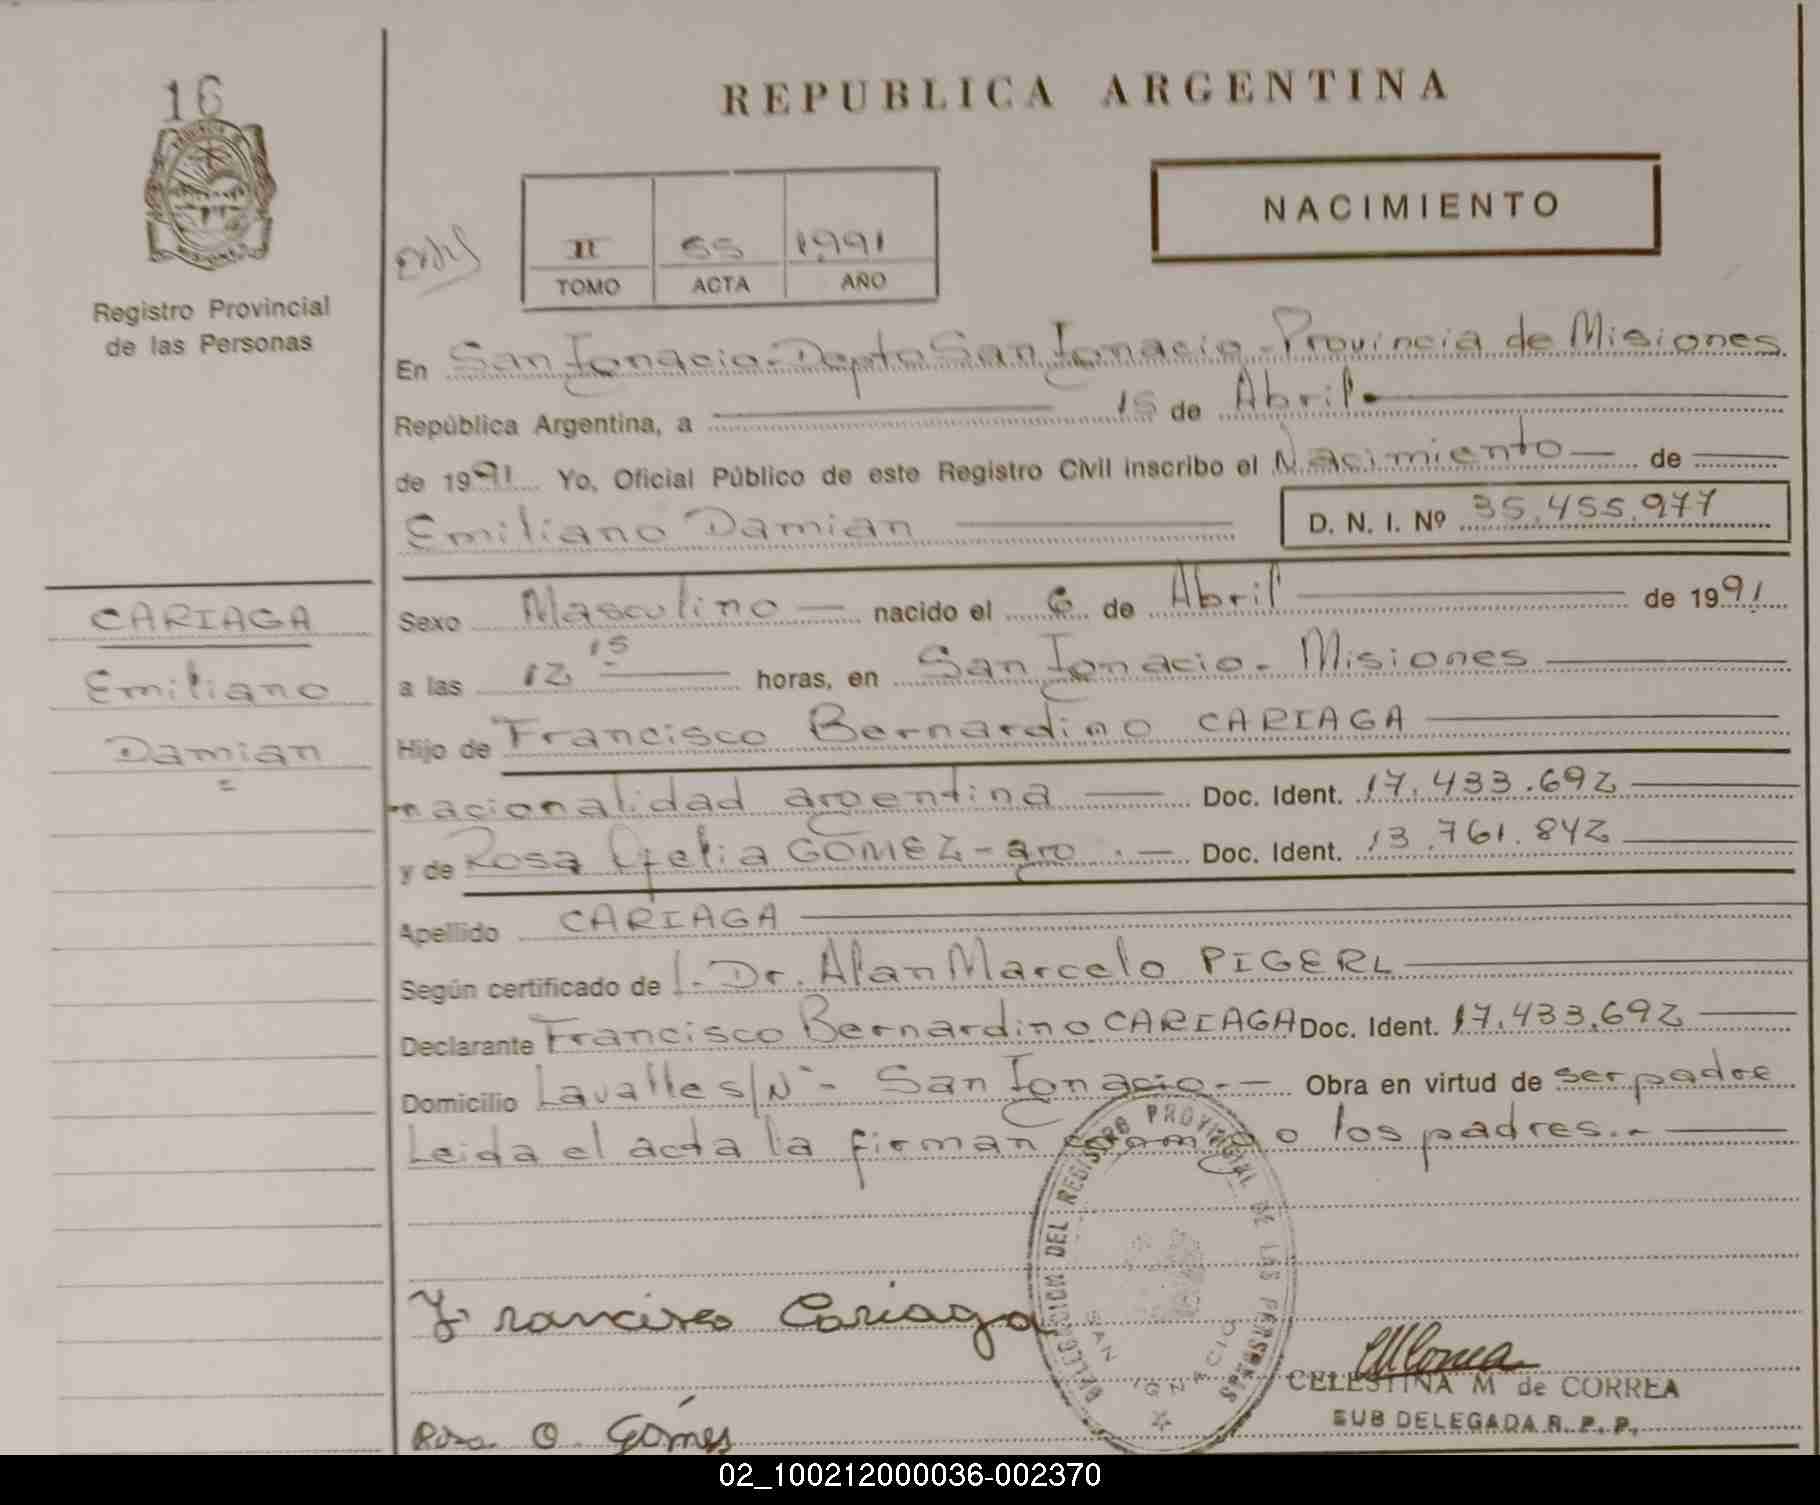 16
REPUBLICA ARGENTINA
NACIMIENTO
Registro Provincial
de las Personas
II 55 1991
TOMO ACTA AÑO
En San Ignacio-Depto San Ignacio-Provincia de Misiones
República Argentina, a 15 de Abril.
de 1991 Yo, Oficial Público de este Registro Civil inscribo el Nacimiento de
Emiliano Damian D. N. I. Nº 35.455.977
CARIAGA
Emiliano
Damian
Sexo Masculino nacido el 6 de Abril de 1991
a las 12 15 horas, en San Ignacio - Misiones
Hijo de Francisco Bernardino CARIAGA
nacionalidad argentina Doc. Ident. 17.433.692
y de Rosa Ofelia GOMEZ - arg. Doc. Ident. 13.761.842
Apellido CARIAGA
Según certificado de l. Dr. Alan Marcelo PIGERL
Declarante Francisco Bernardino CARIAGA Doc. Ident. 17.433.692
Domicilio Lavalle s/Nº - San Ignacio.- Obra en virtud de ser padre
Leida el acta la firman conmigo los padres.-
DELEGACION DEL REGISTRO PROVINCIAL DE LAS PERSONAS
SAN IGNACIO
Francisco Cariaga
CELESTINA M de CORREA
SUB DELEGADA R. P. P.
Rosa O. Gómes
02_100212000036-002370